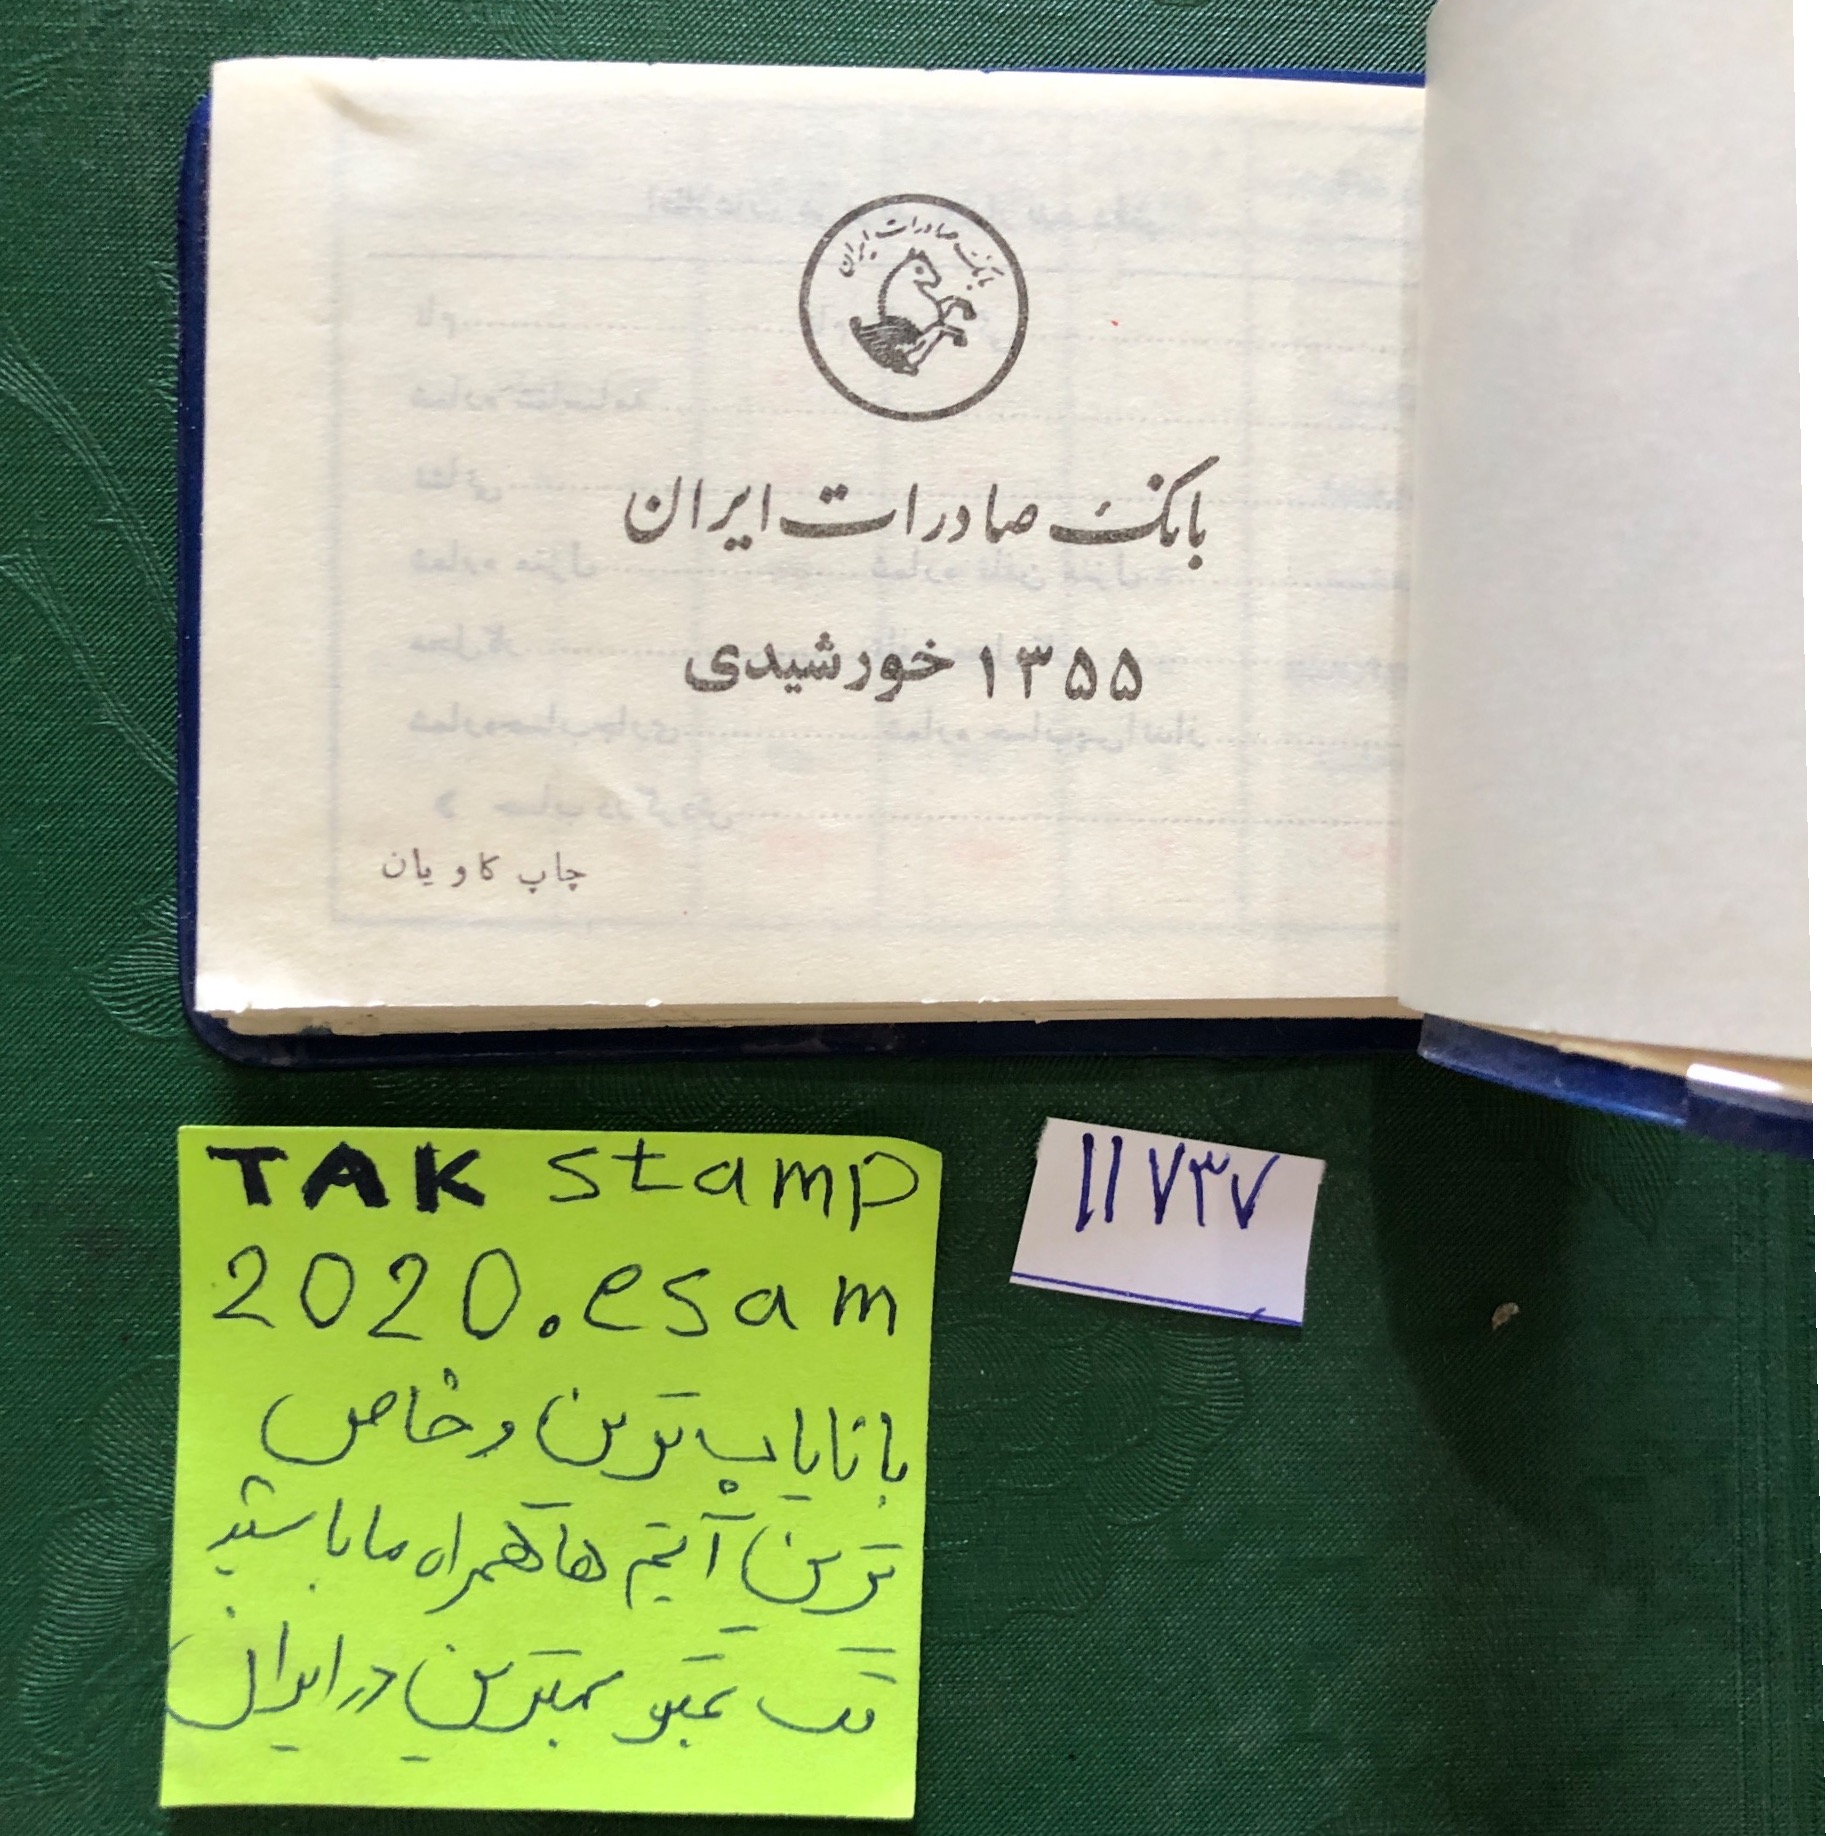 بانک صادرات ایران
بانک صادرات ایران
۱۳۵۵ خورشیدی
چاپ کاویان
TAK stamp
2020.esam
با نایاب ترین و خاص
ترین آیتم ها همراه ما باشید
تک تمبر بهترین در ایران
۱۱۷۳۷